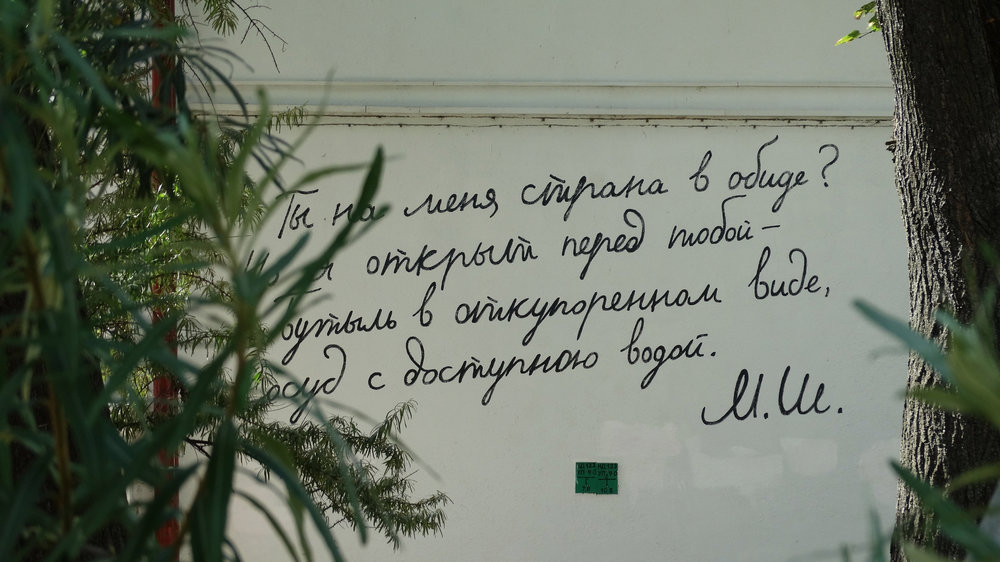 Ты на меня, страна в обиде?
открыт перед тобой –
бутыль в откупоренном виде,
сосуд с доступною водой.
М.Ш.